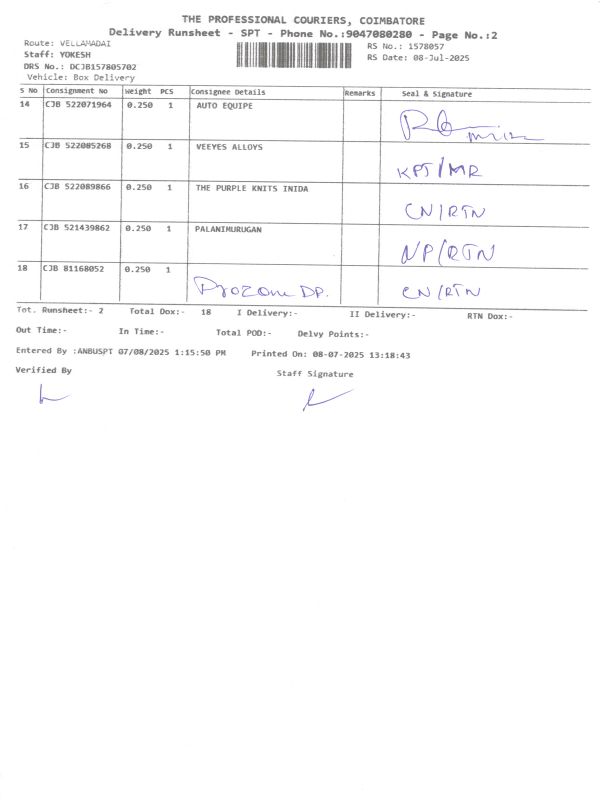 THE PROFESSIONAL COURIERS, COIMBATORE
Delivery Runsheet - SPT - Phone No.:9047080280 - Page No.:2
Route: VELLAMADAI
Staff: YOKESH
DRS No.: DCJB157805702
Vehicle: Box Delivery
RS No.: 1578057
RS Date: 08-Jul-2025
S No Consignment No Weight PCS Consignee Details Remarks Seal & Signature
14 CJB 522071964 0.250 1 AUTO EQUIPE
15 CJB 522085268 0.250 1 VEEYES ALLOYS KPT/MR
16 CJB 522089866 0.250 1 THE PURPLE KNITS INIDA CN/RTN
17 CJB 521439862 0.250 1 PALANIMURUGAN NP/RTN
18 CJB 81168052 0.250 1 Prozone DP. CN/RTN
Tot. Runsheet:- 2 Total Dox:- 18 I Delivery:- II Delivery:- RTN Dox:-
Out Time:- In Time:- Total POD:- Delvy Points:-
Entered By :ANBUSPT 07/08/2025 1:15:50 PM Printed On: 08-07-2025 13:18:43
Verified By Staff Signature